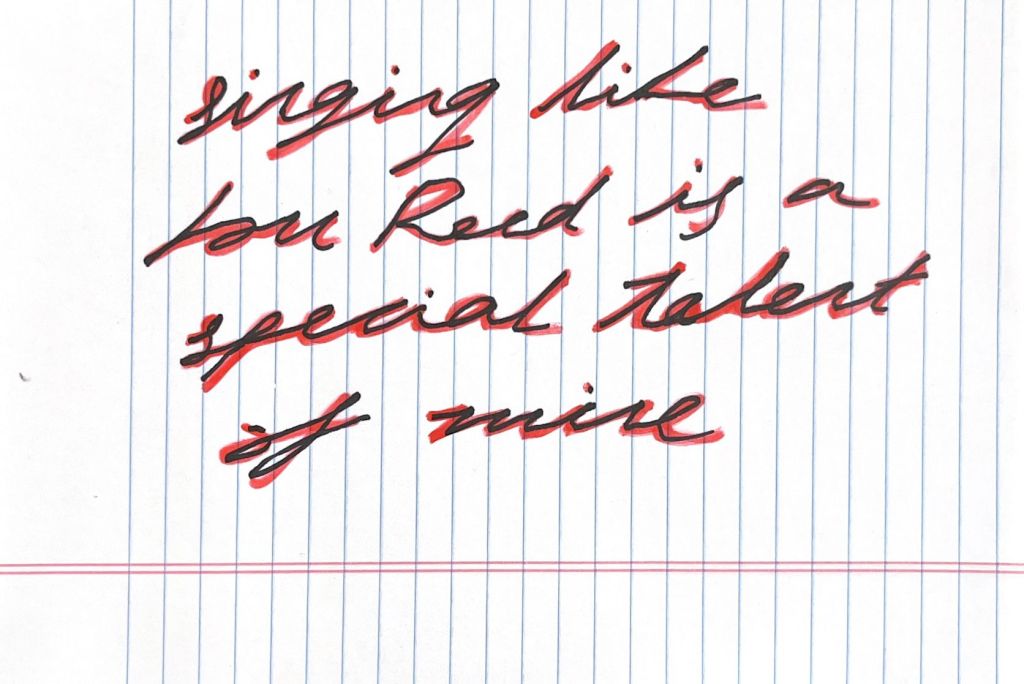 singing like
Lou Reed is a
special talent
of mine